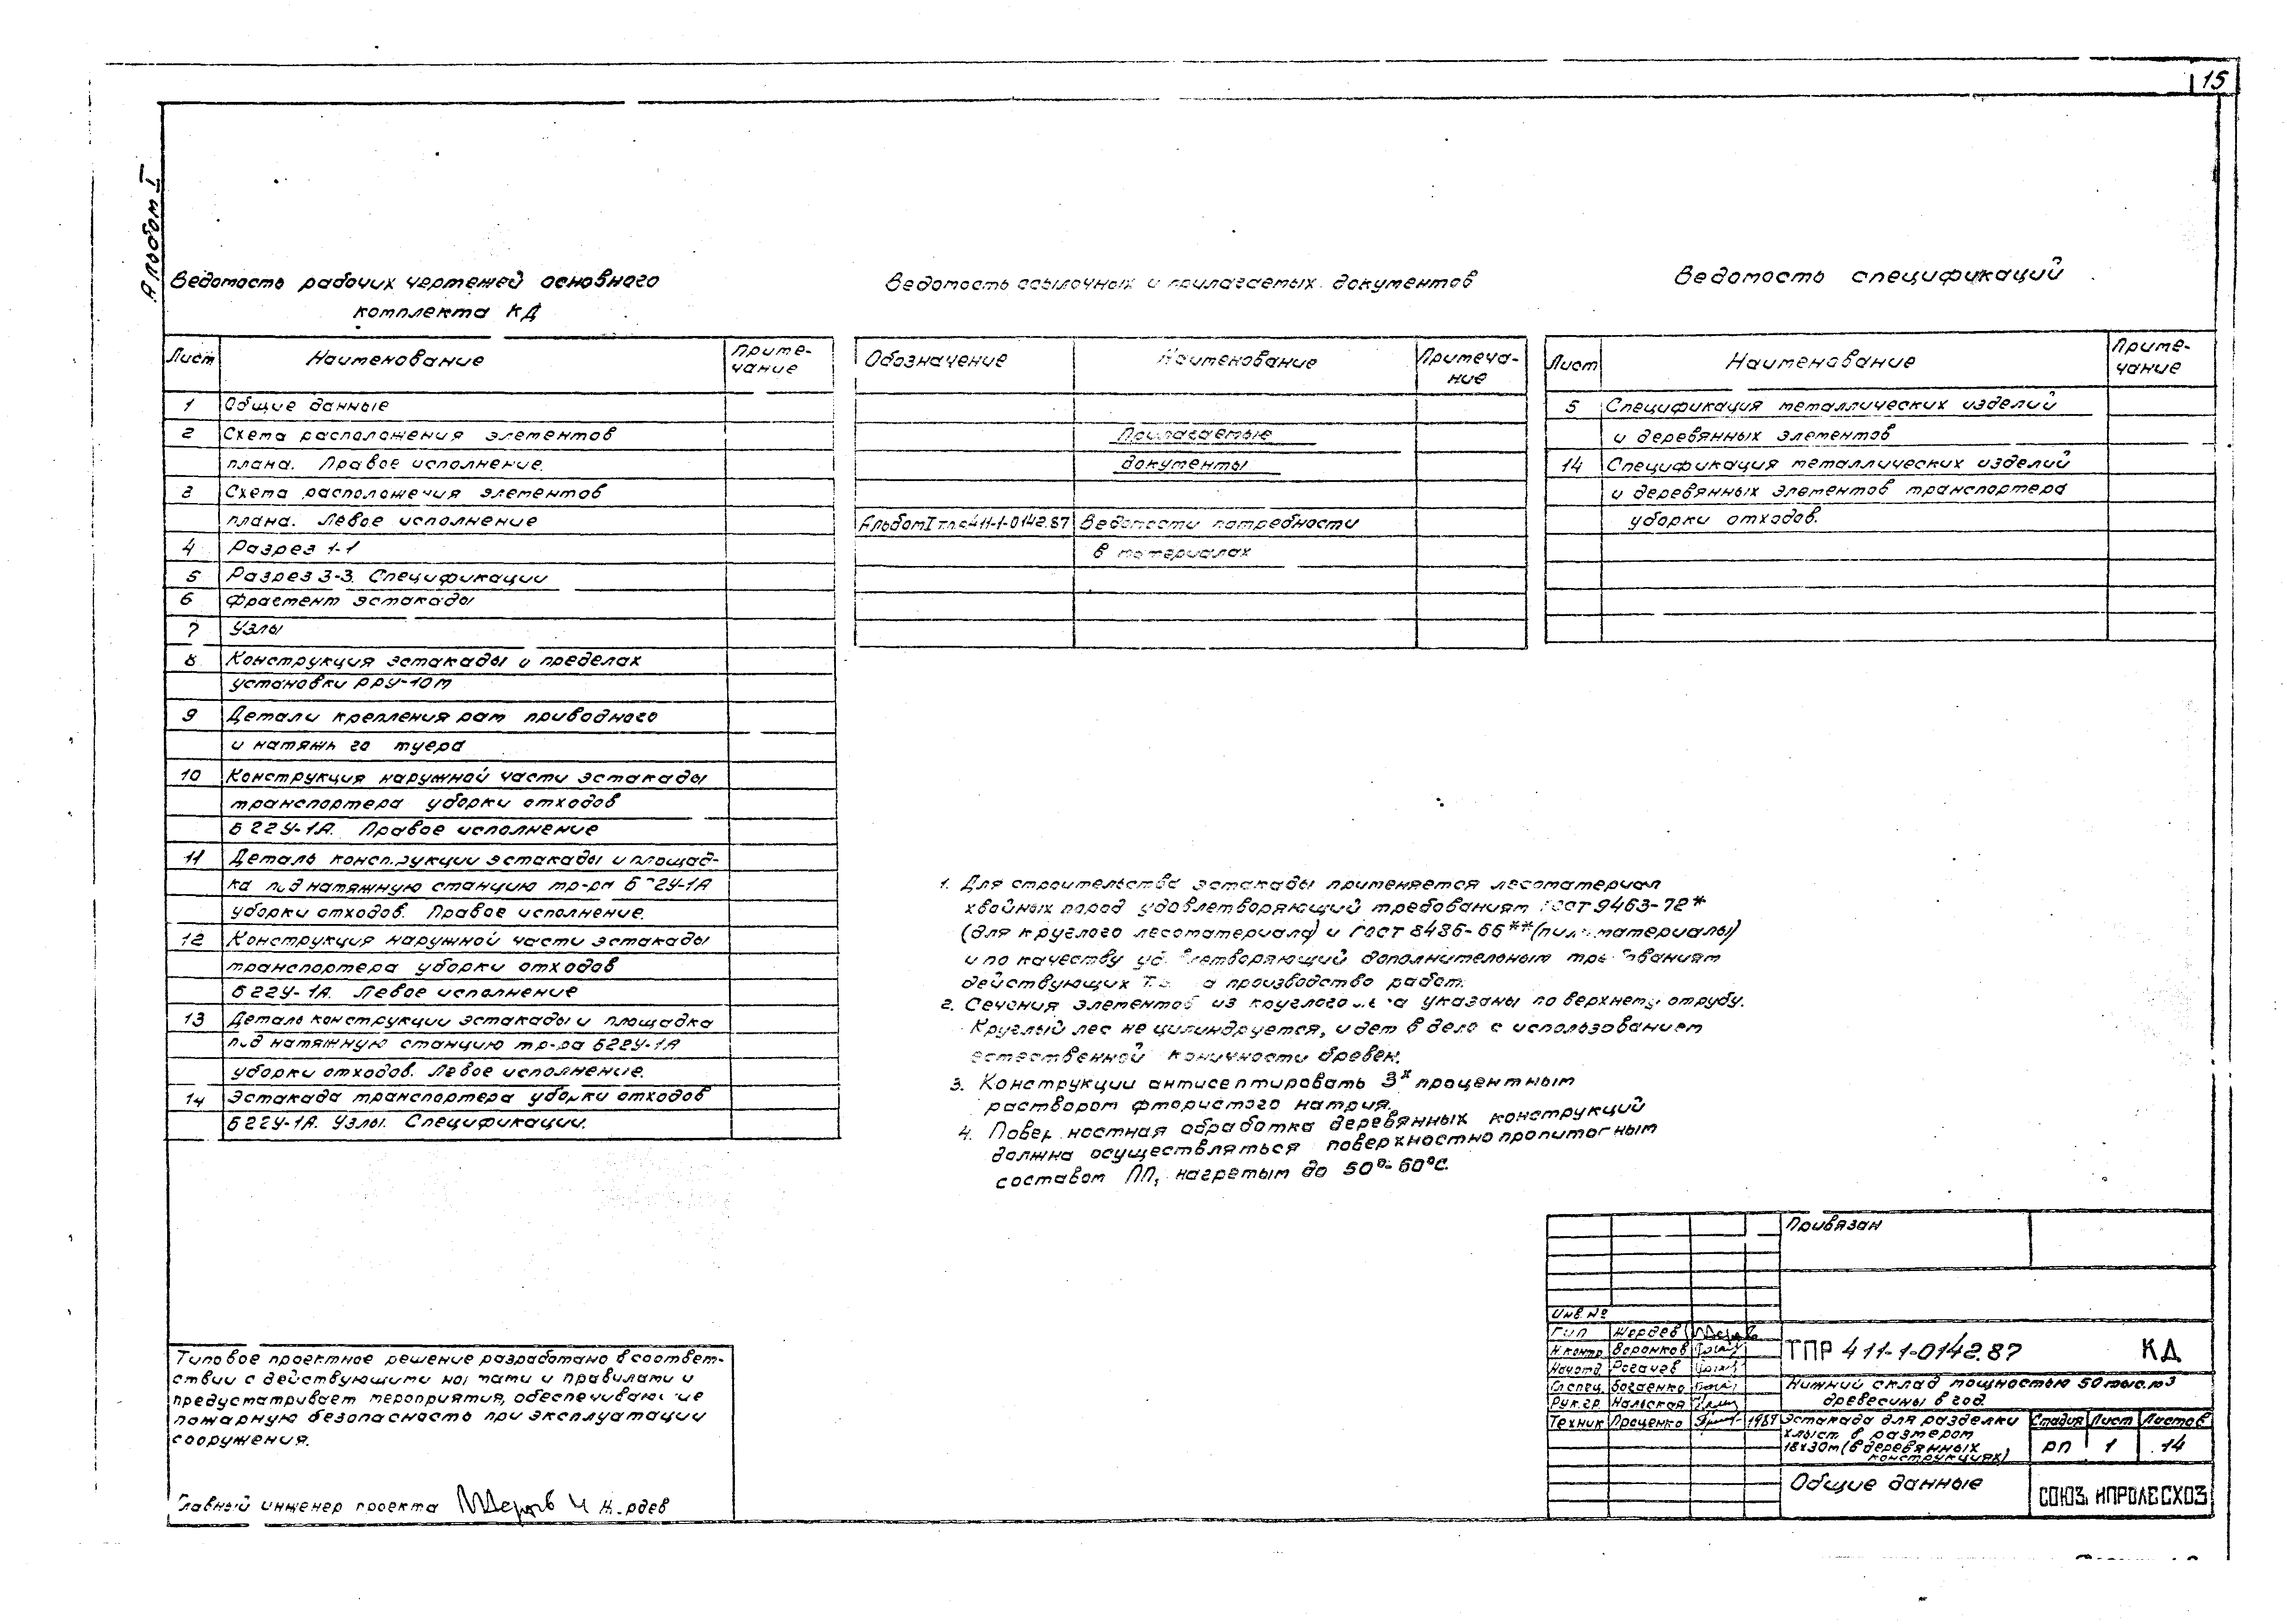 15
Альбом I
Ведомость рабочих чертежей основного
комплекта КД
Лист Наименование Приме-
чание
1 Общие данные
2 Схема расположения элементов
плана. Правое исполнение.
3 Схема расположения элементов
плана. Левое исполнение
4 Разрез 1-1
5 Разрез 3-3. Спецификации
6 Фрагмент эстакады
7 Узлы
8 Конструкция эстакады в пределах
установки РРУ-10м
9 Детали крепления рам приводного
и натяжного туера
10 Конструкция наружной части эстакады
транспортера уборки отходов
Б22У-1А. Правое исполнение
11 Деталь конструкции эстакады и площад-
ка под натяжную станцию тр-ра Б22У-1А
уборки отходов. Правое исполнение.
12 Конструкция наружной части эстакады
транспортера уборки отходов
Б22У-1А. Левое исполнение
13 Деталь конструкции эстакады и площадка
под натяжную станцию тр-ра Б22У-1А
уборки отходов. Левое исполнение.
14 Эстакада транспортера уборки отходов
Б22У-1А. Узлы. Спецификации.
Ведомость ссылочных и прилагаемых документов
Обозначение Наименование Примеча-
ние
Прилагаемые
документы
Альбом I т.п.р 411-1-0142.87 Ведомости потребности
в материалах
Ведомость спецификаций
Лист Наименование Приме-
чание
5 Спецификация металлических изделий
и деревянных элементов
14 Спецификация металлических изделий
и деревянных элементов транспортера
уборки отходов.
1. Для строительства эстакады применяется лесоматериал
хвойных пород удовлетворяющий требованиям ГОСТ 9463-72*
(для круглого лесоматериала) и ГОСТ 8486-66** (пиломатериалы)
и по качеству удовлетворяющий дополнительным требованиям
действующих на производство работ.
2. Сечения элементов из круглого леса указаны по верхнему отрубу.
Круглый лес не цилиндруется, идет в дело с использованием
естественной коничности бревен.
3. Конструкции антисептировать 3х процентным
раствором фтористого натрия.
4. Поверхностная обработка деревянных конструкций
должна осуществляться поверхностно пропиточным
составом ПП, нагретым до 50°-60°С.
Типовое проектное решение разработано в соответ-
ствии с действующими нормами и правилами и
предусматривает мероприятия, обеспечивающие
пожарную безопасность при эксплуатации
сооружения.
Главный инженер проекта Жердев
Привязан
Инв №
ГИП Жердев
Н.контр Воронков
Нач.отд. Рогачев
Гл.спец. Богаенко
Рук.гр. Нальская
Техник Проценко 1987
ТПР 411-1-0142.87 КД
Нижний склад мощностью 50 тыс.м3
древесины в год.
Эстакада для разделки
хлыст. в размером
18х30м (в деревянных
конструкциях)
Стадия Лист Листов
РП 1 14
Общие данные
СОЮЗГИПРОЛЕСХОЗ